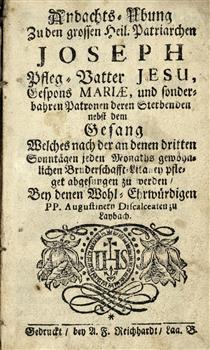 Andachts-Ubung
Zu den grossen Heil. Patriarchen
JOSEPH
Pfleg-Vatter JESU,
Gespons MARIÆ, und sonder-
bahren Patronen deren Sterbenden
nebst dem
Gesang
Welches nach der an denen dritten
Sonntägen jeden Monaths gewöhn-
lichen Bruderschafft-Litaney pfle-
get abgesungen zu werden/
Bey denen Wohl-Ehrwürdigen
PP. Augustinern Discalceaten zu
Laybach.
IHS
Gedruckt / bey A. F. Reichhardt / Laa. B.